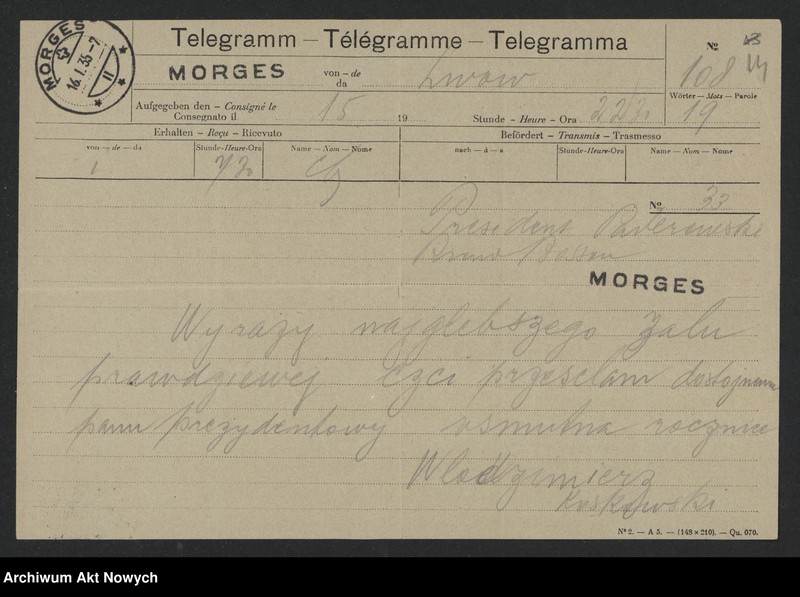 MORGES
16.I.35-7
II
Telegramm – Télégramme – Telegramma
MORGES
von – de
da
Lwow
No
108
Wörter – Mots – Parole
19
Aufgegeben den – Consigné le
Consegnato il
15
19
Stunde – Heure – Ora
Erhalten – Reçu – Ricevuto
Befördert – Transmis – Trasmesso
von – de – da
Stunde-Heure-Ora
Name – Nom – Nome
nach – à – a
Stunde-Heure-Ora
Name – Nom – Nome
No 33
President Paderewski
MORGES
Wyrazy najglebszego zalu
prawdziewej czci przeselam dostojnemu
panu prezydentowy
rocznice
Wlodzimierz
No 2. – A 5. – (148 × 210). – Qu. 070.
Archiwum Akt Nowych